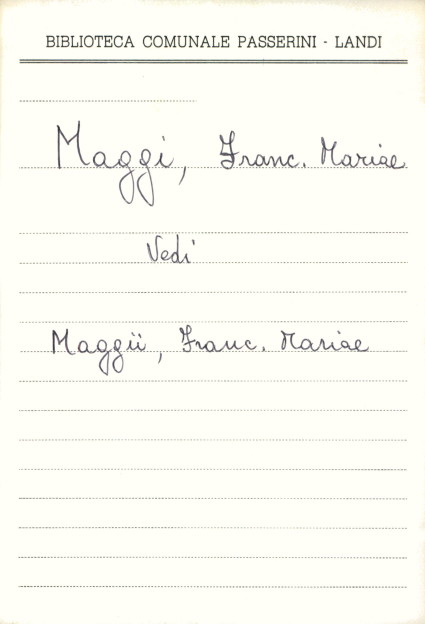 BIBLIOTECA COMUNALE PASSERINI - LANDI
Maggi, Franc. Mariae
Vedi
Maggii, Franc. Mariae